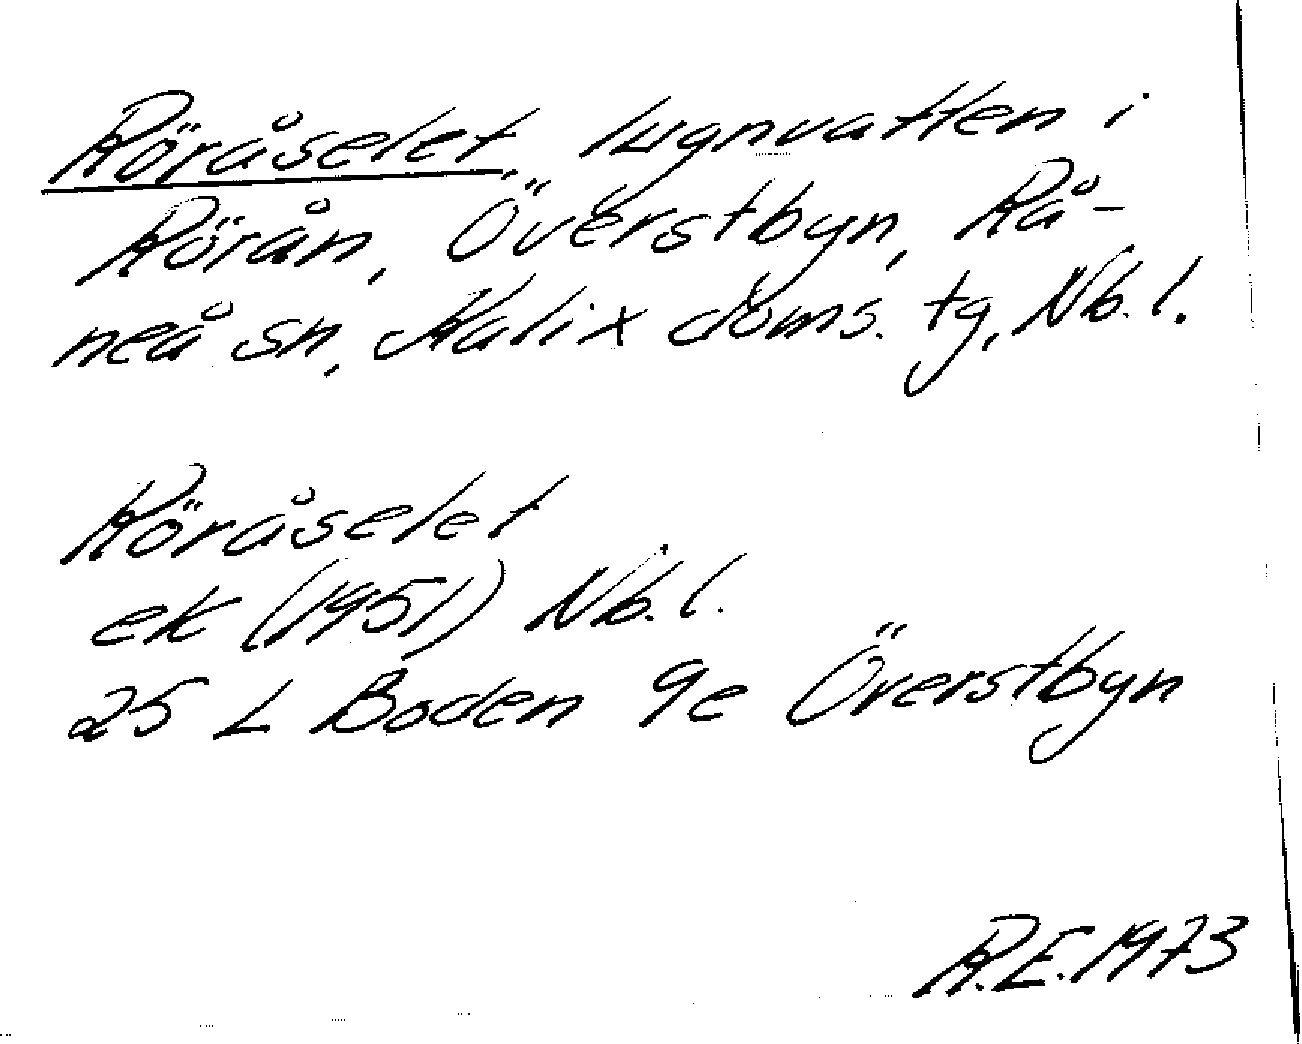 Röråselet, lugnvatten i
Rörån, Överstbyn, Rå-
neå sn, Kalix doms. tg, Nb. l.
Röråselet
ek (1951) Nb. l.
25 L Boden 9e Överstbyn
R.E. 1973